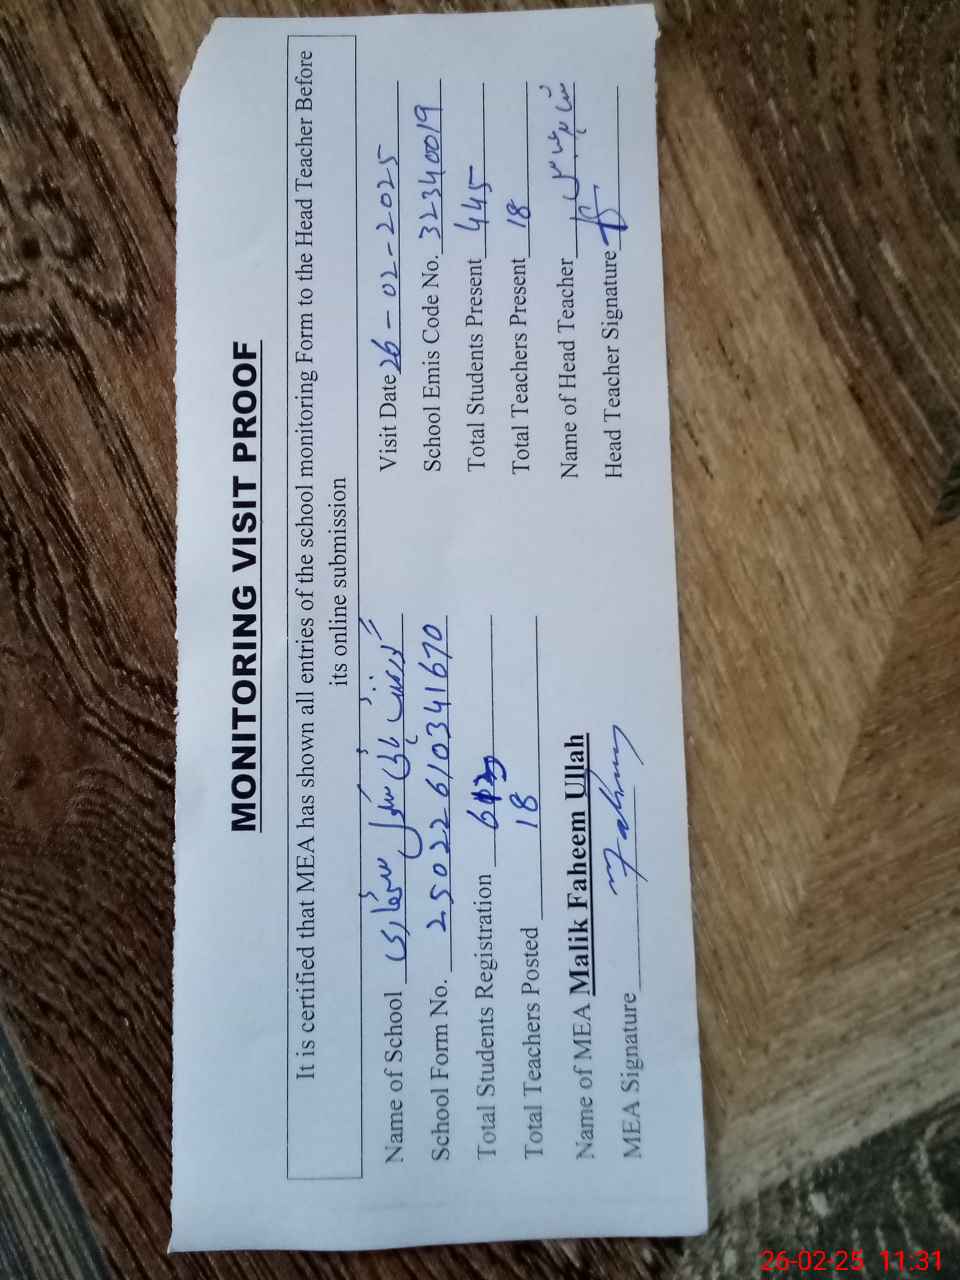 MONITORING VISIT PROOF
It is certified that MEA has shown all entries of the school monitoring Form to the Head Teacher Before
its online submission
Name of School گورنمنٹ ہائی سکول
Visit Date 26-02-2025
School Form No. 25022610341670
School Emis Code No. 32340019
Total Students Registration
Total Students Present 445
Total Teachers Posted 18
Total Teachers Present 18
Name of MEA Malik Faheem Ullah
Name of Head Teacher
MEA Signature Faheem
Head Teacher Signature
26-02-25 11:31